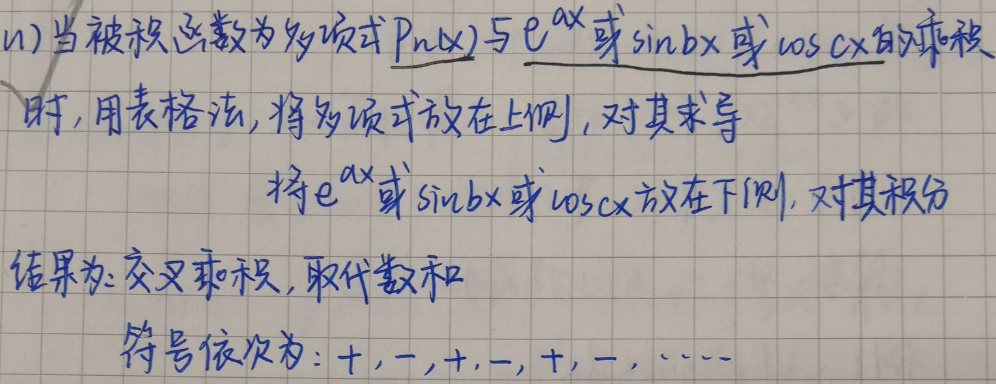 (1)当被积函数为多项式Pn(x)与e^ax或sinbx或coscx的乘积
时,用表格法,将多项式放在上侧,对其求导
将e^ax或sinbx或coscx放在下侧,对其积分
结果为:交叉乘积,取代数和
符号依次为:+,-,+,-,+,-,……